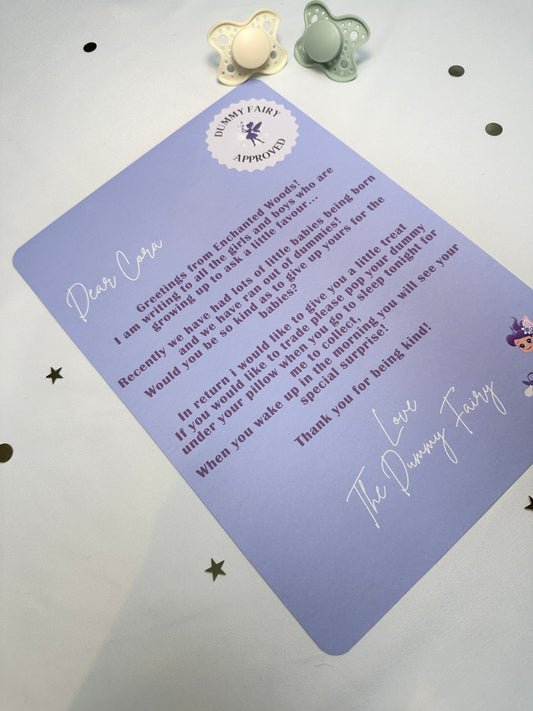 DUMMY FAIRY
APPROVED
Dear Cara
Greetings from Enchanted Woods!
I am writing to all the girls and boys who are
growing up to ask a little favour...
Recently we have had lots of little babies being born
and we have ran out of dummies!
Would you be so kind as to give up yours for the
babies?
In return i would like to give you a little treat
If you would like to trade please pop your dummy
under your pillow when you go to sleep tonight for
me to collect,
When you wake up in the morning you will see your
special surprise!
Thank you for being kind!
Love
The Dummy Fairy